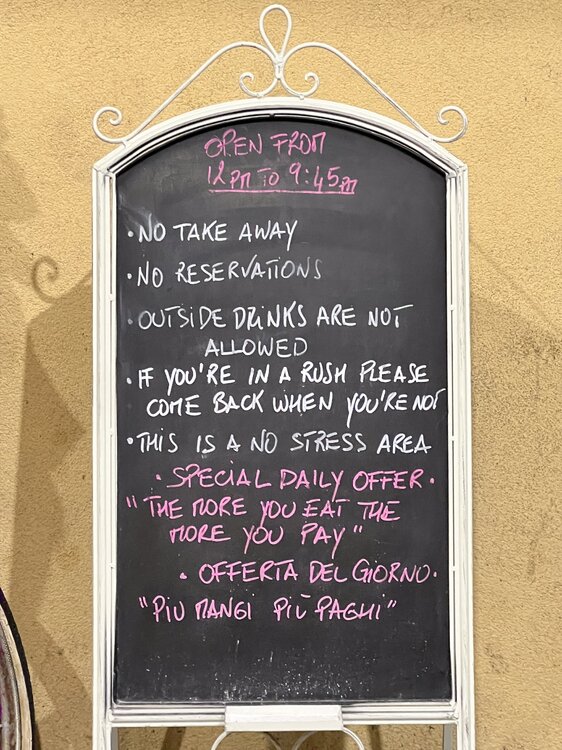 OPEN FROM
12PM TO 9:45PM
·NO TAKE AWAY
·NO RESERVATIONS
·OUTSIDE DRINKS ARE NOT
ALLOWED
·IF YOU'RE IN A RUSH PLEASE
COME BACK WHEN YOU'RE NOT
·THIS IS A NO STRESS AREA
·SPECIAL DAILY OFFER·
"THE MORE YOU EAT THE
MORE YOU PAY"
·OFFERTA DEL GIORNO·
"PIU MANGI PIÙ PAGHI"